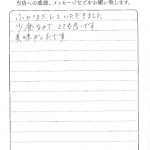 当店への感想、メッセージなどをお願い致します。
ふわつまだしていただきました
少食なので とても良いです
美味かったです